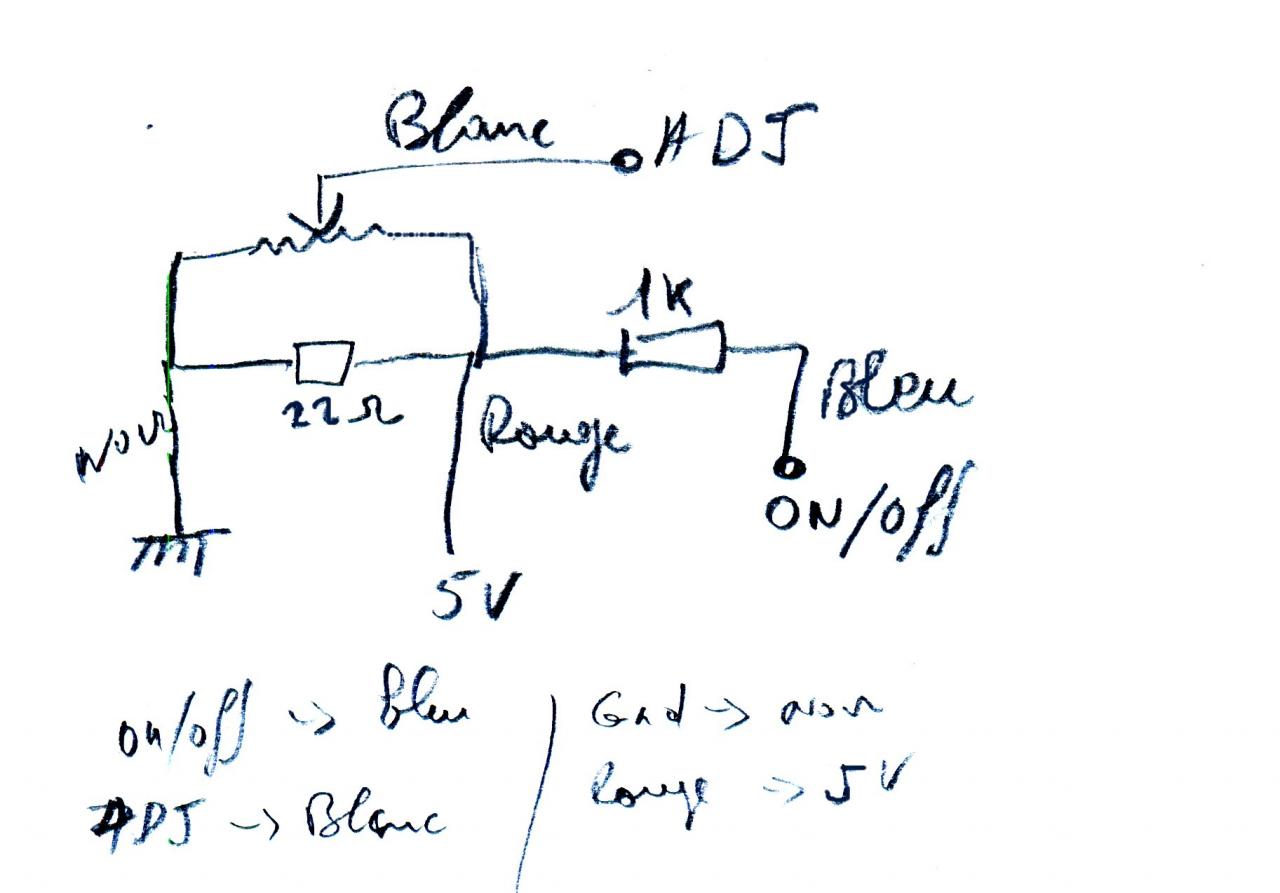 Blanc
ADJ
1K
22Ω
Noir
Rouge
Bleu
ON/Off
5V
on/off -> Bleu
Gnd -> noir
ADJ -> Blanc
Rouge -> 5V